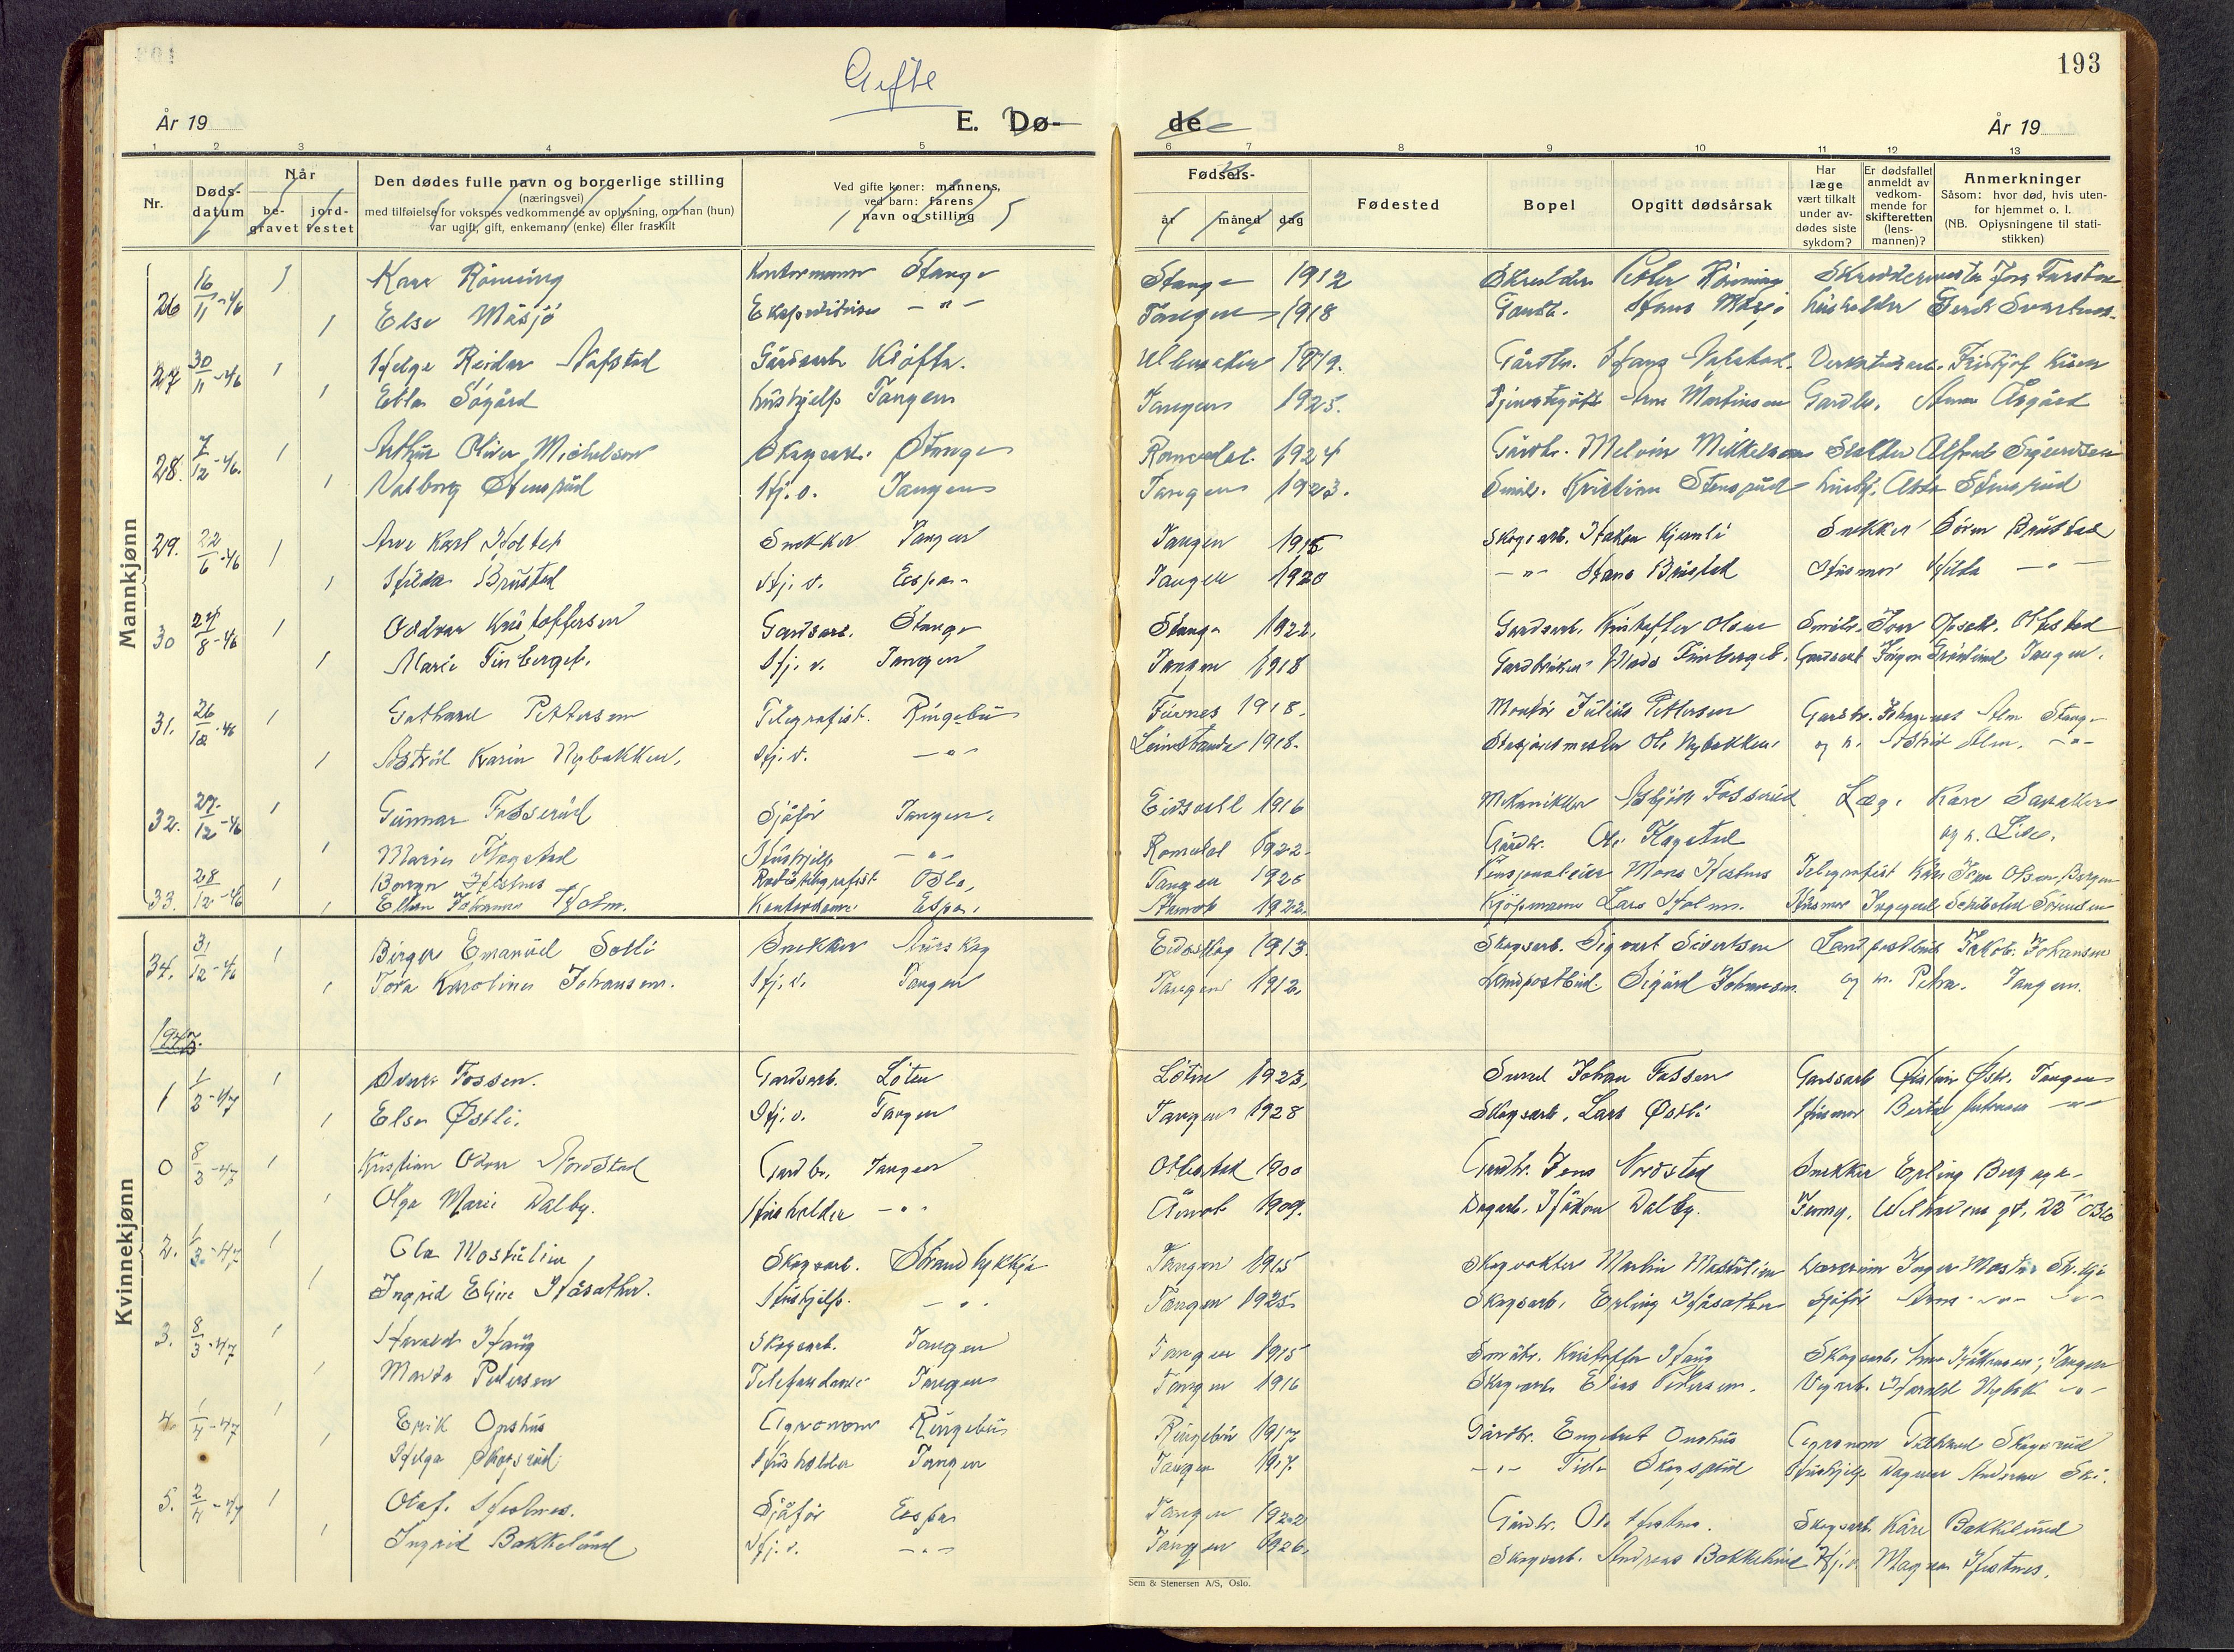 193
Gifte
År 19
E. Dø-
de
År 19
1 2 3 4 5 6 7 8 9 10 11 12 13
Nr.
Døds-
datum
Når
be-
gravet
jord-
festet
Den dødes fulle navn og borgerlige stilling
(næringsvei)
med tilføielse for voksnes vedkommende av oplysning, om han (hun)
var ugift, gift, enkemann (enke) eller fraskilt
Ved gifte koner: mannens,
ved barn: farens
navn og stilling
Fødsels-
år måned dag
Fødested
Bopel
Opgitt dødsårsak
Har
læge
vært tilkalt
under av-
dødes siste
sykdom?
Er dødsfallet
anmeldt av
vedkom-
mende for
skifteretten
(lens-
mannen)?
Anmerkninger
Såsom: hvor død, hvis uten-
for hjemmet o. l.
(NB. Oplysningene til stati-
stikken)
Mannkjønn
26 16/11-46 Kåre Rönning Kontormann Stange Stange 1912 Petter Rönning
Else Måsjö Ekspeditrise -"- Tangen 1918 Hans
27 30/11-46 Helge Reidar Nafstad Gårdsarb. Kløfta. Ullensaker 1919. Gårdbr. Hans Nafstad.
Ebba Sögård hushjelp Tangen Tangen 1925. Arne Martinsen Gardbr.
28. 7/12-46. Arthur Oliver Michelsen Stange Romedal. 1924 Gårdbr. Melvin Mikkelsen Alfred Sigurdsen
Valborg Stensrud Hj.v. Tangen Tangen 1923. Småbr. Kristian Stensrud
29. 22/6-46 Arve Karl Holtet Snekker Tangen Tangen 1915 Skogsarb. Håkon Snekker Sören Brustad
Hilda Brustad Hj.v. Espa. Tangen 1920 -"- Hans Brustad Husmor Hilda -"-
30 24/8-46 Oddvar Kristoffersen Gardsarb. Stange Stange 1922. Gardsarb. Kristoffer Olsen Småbr. Ivar
Marie Finberget. Hj.v. Tangen Tangen 1918 Gardbruker Mads Finberget. Gardsarb. Jörgen Tangen.
31. 26/12-46 Gothard Pettersen Telegrafist. Ringebu Furnes 1918. Montör Julius Pettersen Gardbr. Johannes Alm Stange
Astrid Karin Nybakken. Hj.v. -"- Leinstranda 1918. Stasjonsmester Ole Nybakken. og h. Astrid Alm. -"-
32. 27/12-46 Gunnar Fosserud Sjåför Tangen. Eidsvoll 1916 Mekaniker Asbjörn Fosserud Læge Kåre
Marie Flagstad Hushjelp -"- Romedal 1922. Gårdbr. Ole Flagstad og h. Lise.
33. 28/12-46 Hestnes Radiotelegrafist Oslo, Tangen 1920 Pensjonatseier Mons Hestnes Telegrafist Kåre Olsen, Bergen
Ellen Johanne Holm. Kontordame Espa. 1922. Kjöpmann Lars Holm. Husmor Ingegerd Schibsted Sörensen
Kvinnekjønn
34. 31/12-46 Birger Emanuel Solli Snekker Aurskog Eidskog 1913. Skogsarb. Sigvart Sivertsen Landpostbud Jakob Johansen
Tora Karoline Johansen. Hj.v. Tangen Tangen 1912. Landpostbud. Sigurd Johansen. og h. Petra. Tangen.
1947.
1 1/3-47 Fossen. Gardsarb. Löten Löten 1923, Johan Fossen Gardsarb. Tangen
Else Østli. Hj.v. Tangen Tangen 1928 Skogsarb. Lars Østli Husmor -"-
0 8/3-47 Kristian Odvar Nordstad Gardbr. Tangen Ottestad 1900 Gardbr. Jens Nordstad Snekker Erling Berg og h.
Olga Marie Dalby. Husholder -"- Åmot 1909. Håkon Dalby. Jenny. gt. 22 Oslo
2. 1/3-47 Ola Mostulien Skogsarb. Strandlykkja Tangen 1915 Skogvokter Martin Mostulien Inger
Ingrid Eline Håsæther. Hushjelp. -"- Tangen 1925 Skogsarb. Erling Håsæther Sjåför Arne -"- -"-
3. 8/3-47 Harald Haug Skogsarb. Tangen Tangen 1915 Småbr. Kristoffer Haug Skogsarb. Tangen
Marta Pedersen Telefondame Tangen Tangen 1916 Skogsarb. Elias Pedersen. Vegarb. Harald -"-
4. 1/4-47 Erik Onshus Agronom Ringebu Ringebu 1917 Gårdbr. Engebret Onshus Agronom Skogsrud
Helga Skogsrud. Husholder Tangen Tangen 1917. -"- Skogsrud Hushjelp Dagmar
5. 2/4-47 Olaf. Hestnes. Sjåför Espa Tangen 1922 Gårdbr. Ole Hestnes. Skogsarb. Kåre Bakkelund
Ingrid Bakkelund Hj.v. -"- Tangen 1926. Skogsarb. Andreas Bakkelund Hj.v. Hestnes.
Sem & Stenersen A/S, Oslo.